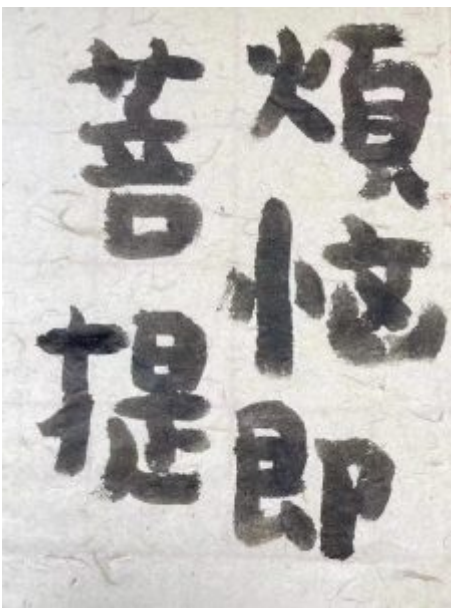 煩悩即
菩提